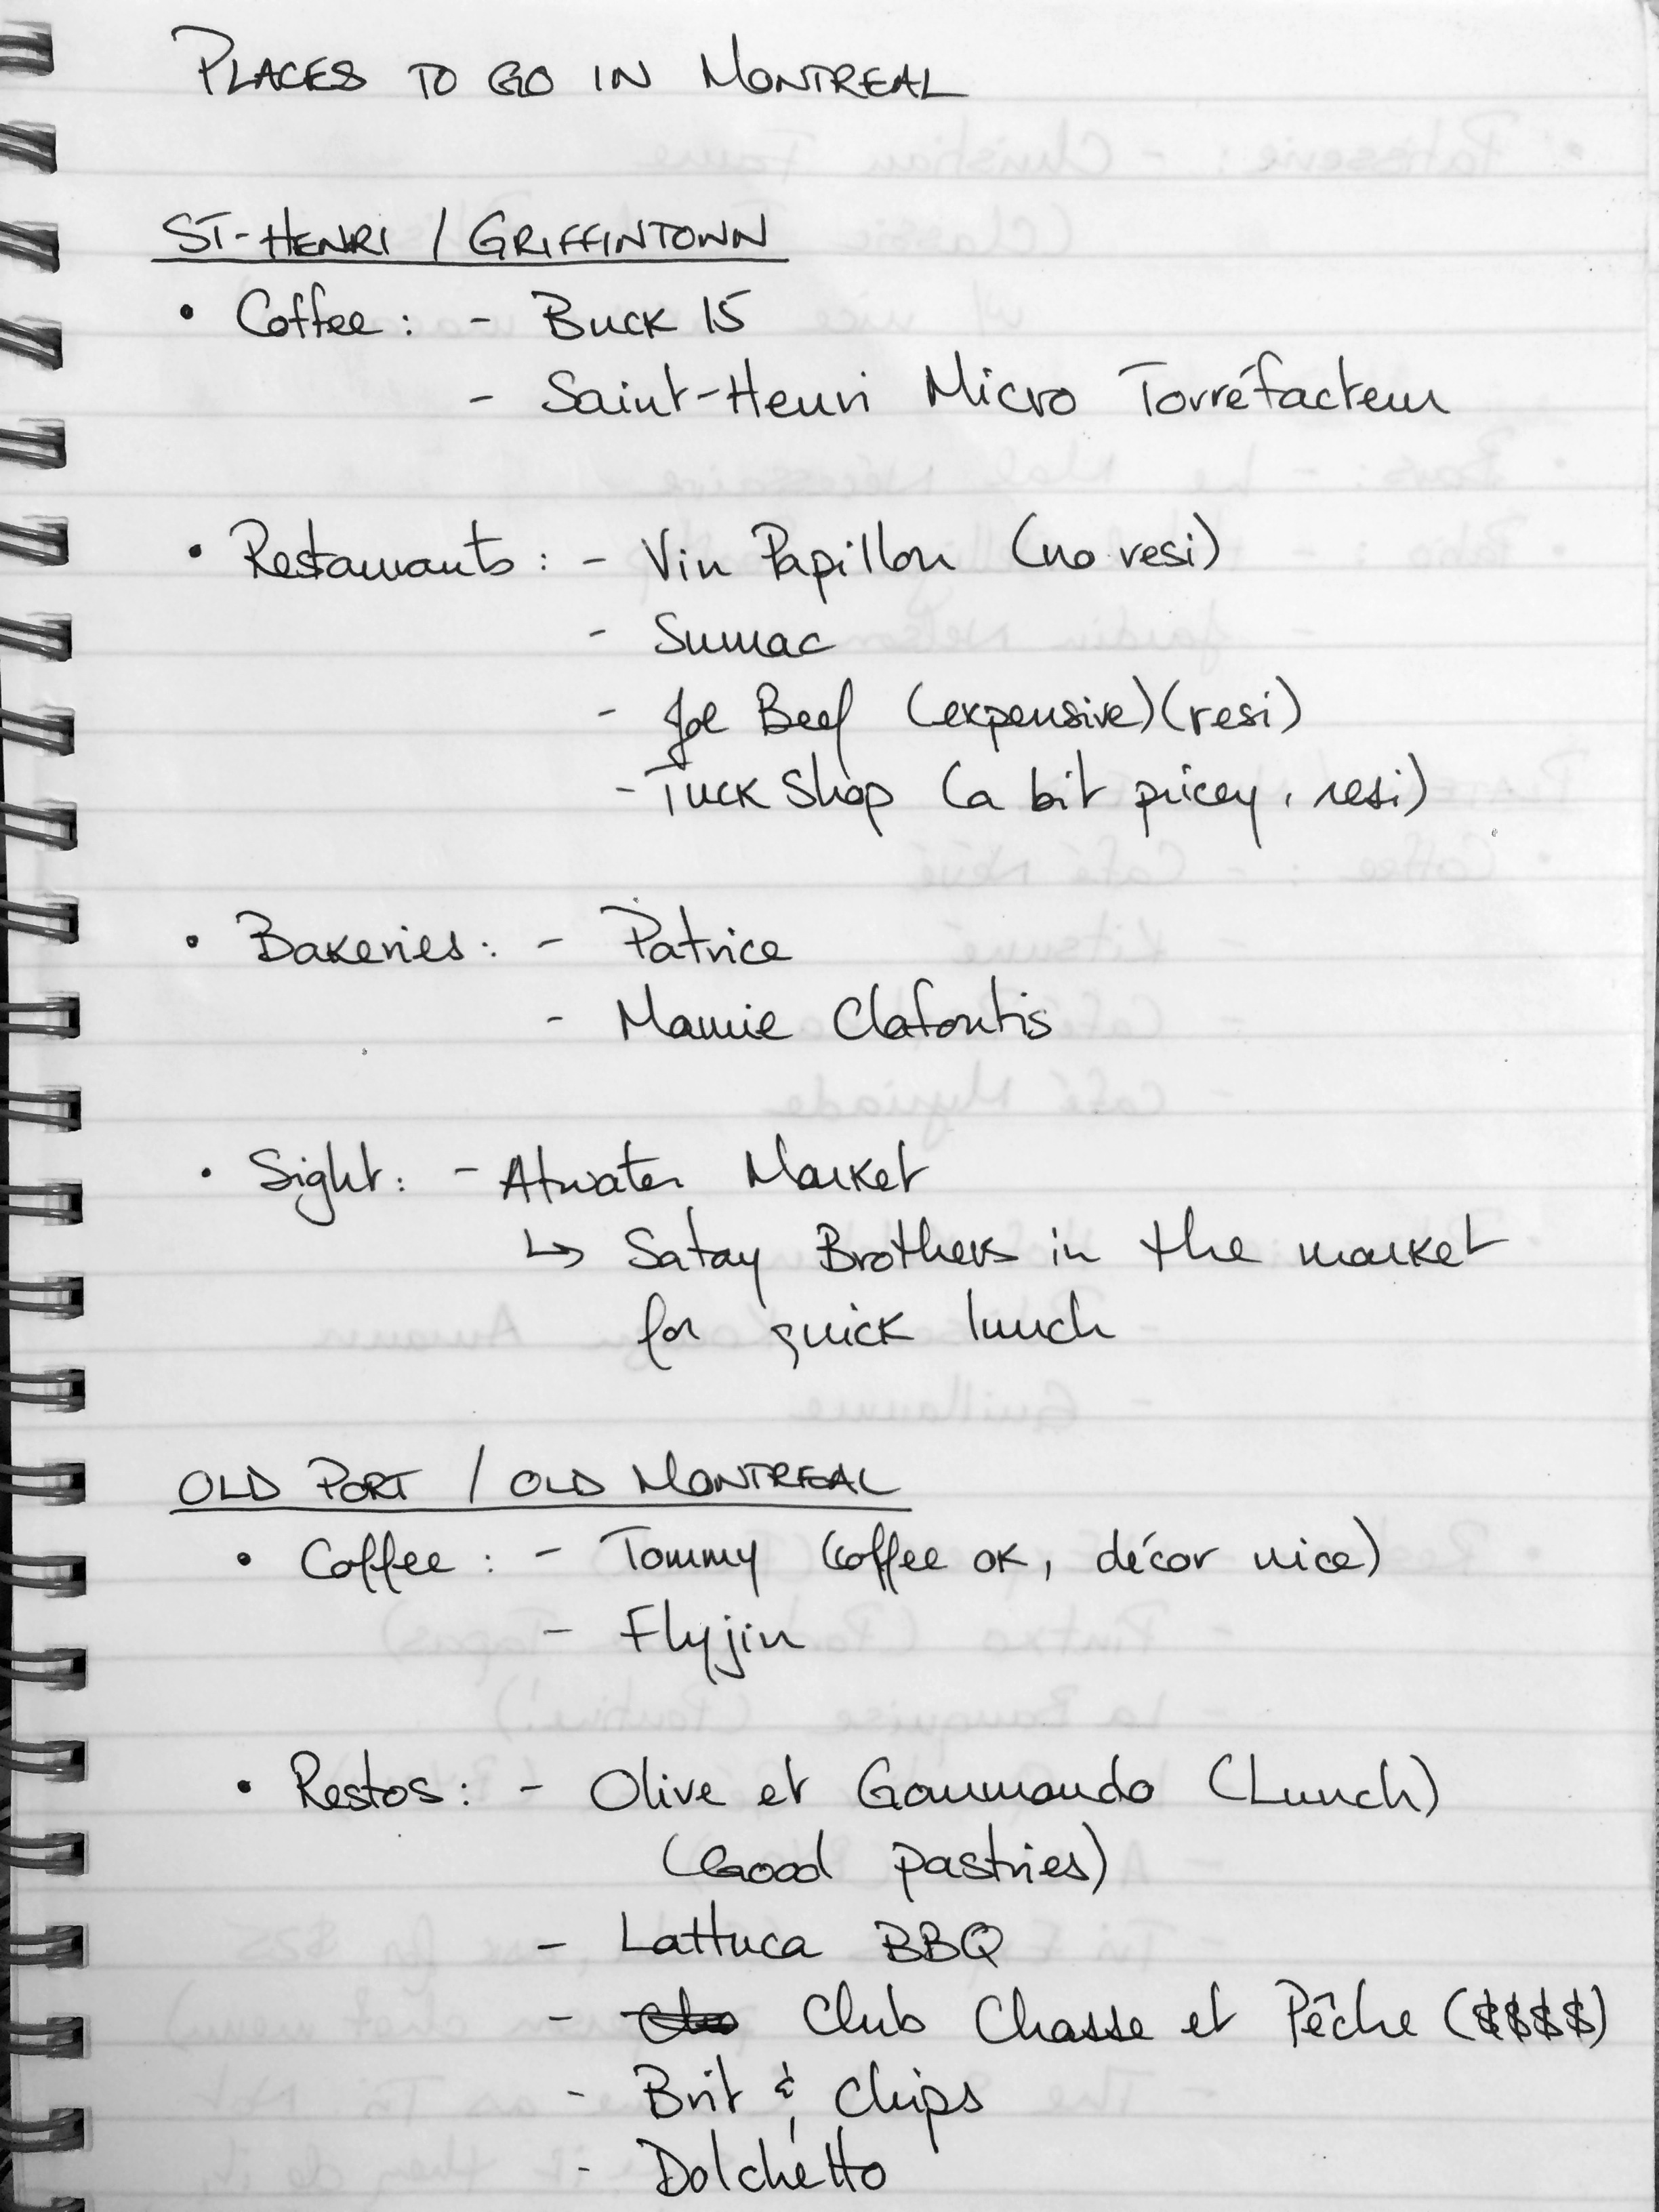 PLACES TO GO IN MONTREAL
ST-HENRI / GRIFFINTOWN
• Coffee : - BUCK 15
- Saint-Henri Micro Torréfacteur
• Restaurants : - Vin Papillon (no resi)
- Sumac
- Joe Beef (expensive) (resi)
- Tuck Shop (a bit pricey, resi)
• Bakeries : - Patrice
- Mamie Clafoutis
• Sight : - Atwater Market
↳ Satay Brothers in the market
for quick lunch
OLD PORT / OLD MONTREAL
• Coffee : - Tommy (coffee OK, décor nice)
- Flyjin
• Restos : - Olive et Gourmando (Lunch)
(Good pastries)
- Lattuca BBQ
- Club Chasse et Pêche ($$$$)
- Brit & Chips
- Dolchetto